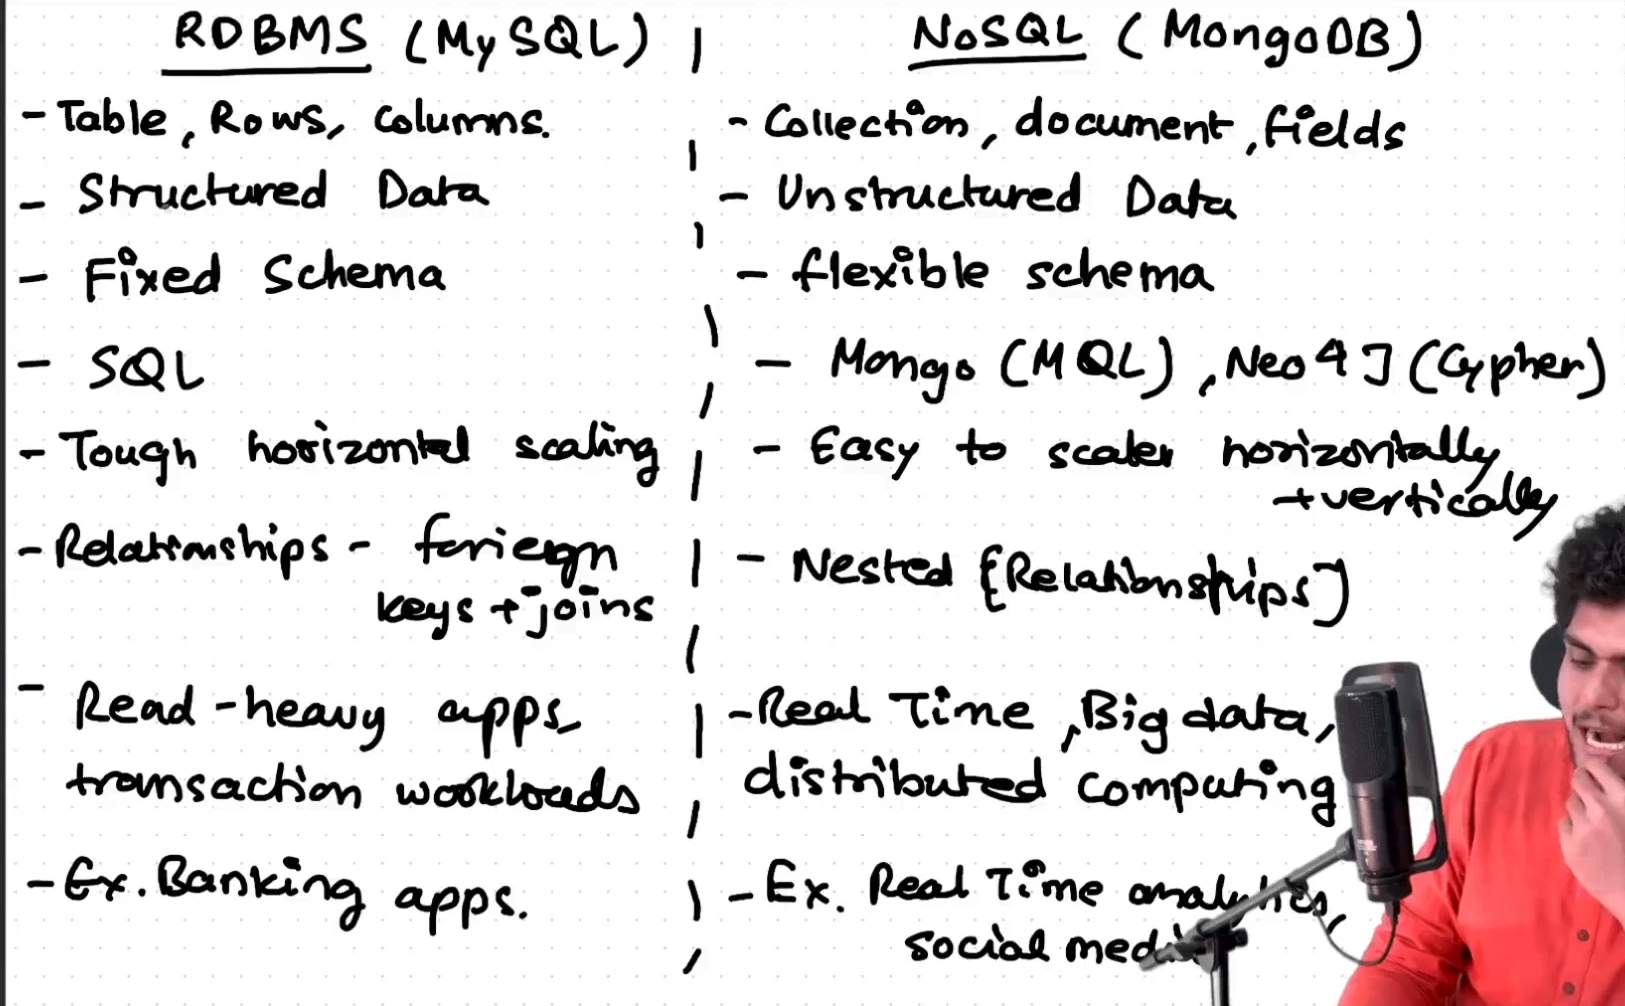 RDBMS (MySQL)
- Table, Rows, columns.
- Structured Data
- Fixed Schema
- SQL
- Tough horizontal scaling
- Relationships - foriegn
keys + joins
- Read-heavy apps
transaction workloads
- Ex. Banking apps.
NoSQL (MongoDB)
- Collection, document, fields
- Unstructured Data
- flexible schema
- Mongo (MQL), Neo4J (Cypher)
- Easy to scale horizontally
+ vertically
- Nested {Relationships]
- Real Time, Big data,
distributed computing
- Ex. Real Time analytics,
social media